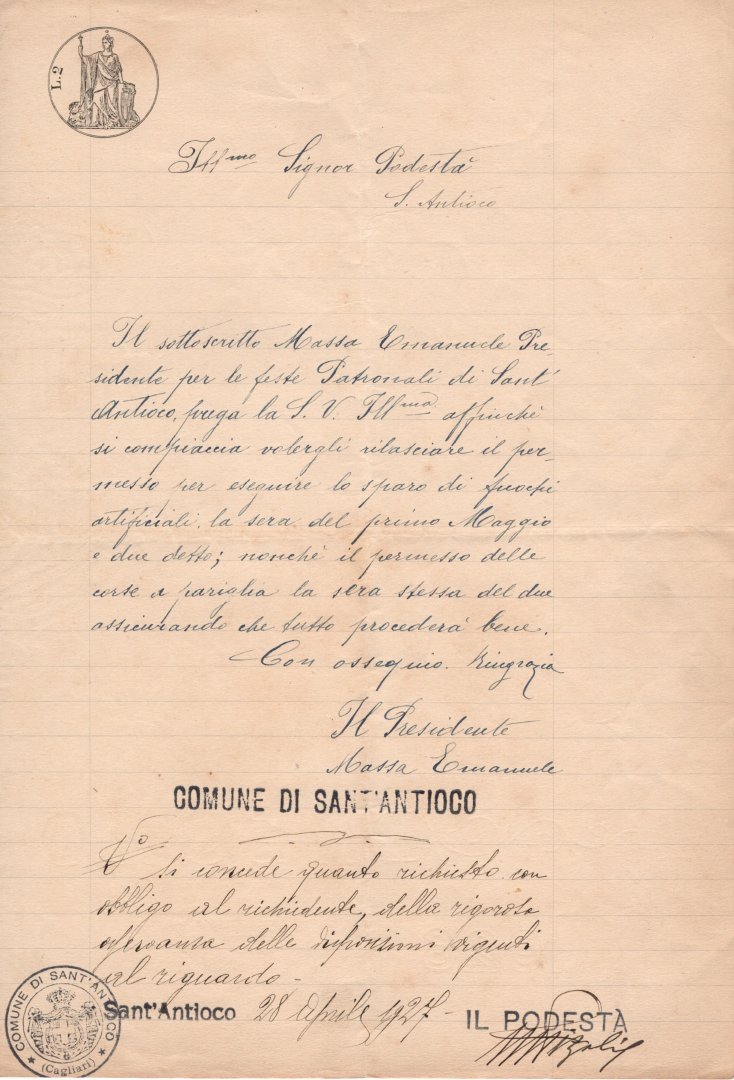 L. 2
Ill.mo Signor Podestà
S. Antioco
Il sottoscritto Massa Emanuele Pre-
sidente per le feste Patronali di Sant'
Antioco, prega la S. V. Ill.ma affinchè
si compiaccia volergli rilasciare il per-
messo per eseguire lo sparo di fuochi
artificiali, la sera del primo Maggio
e due detto; nonchè il permesso delle
corse a pariglia la sera stessa del due
assicurando che tutto procederà bene.
Con ossequio. Ringrazia
Il Presidente
Massa Emanuele
COMUNE DI SANT'ANTIOCO
Vo
Si concede quanto richiesto con
obbligo al richiedente, della rigorosa
osservanza delle disposizioni vigenti
al riguardo -
Sant'Antioco 28 Aprile 1927 -
IL PODESTÀ
COMUNE DI SANT'ANTIOCO
(Cagliari)